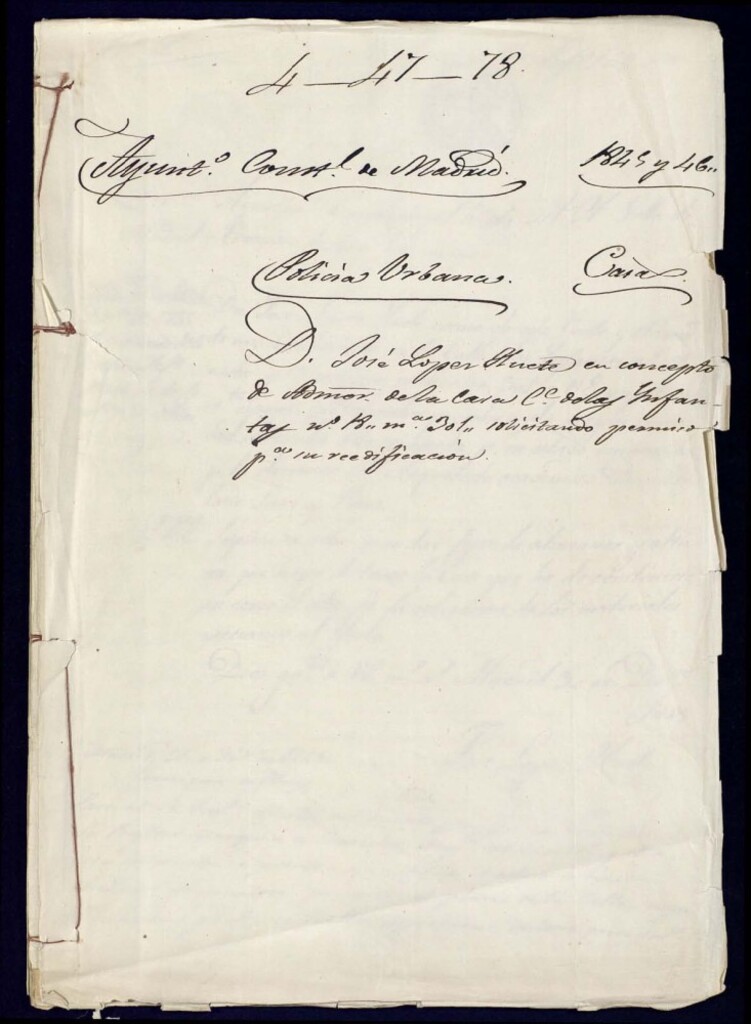 4-47-78.
Ayunt.º Const.l de Madrid. 1845 y 46,,
Policia Urbana. Casa.
D. José Lopez Huete en concepto
de Admor. de la Casa C.e de las Ynfan-
tas nº 18,, m.na 301,, solicitando permiso
p.a su reedificación.